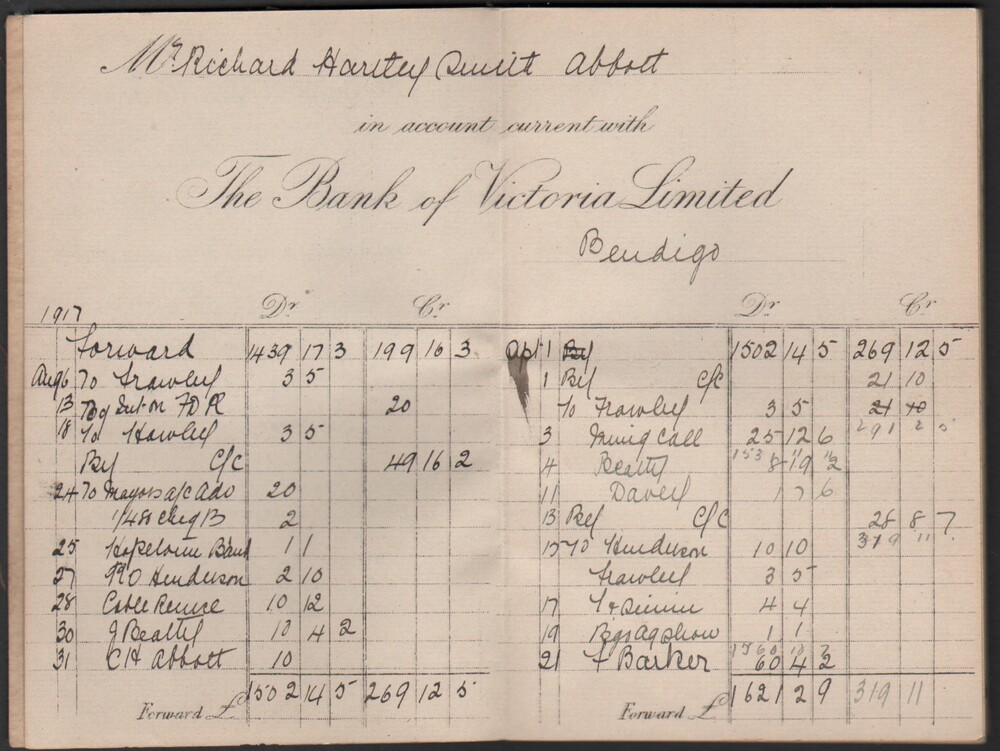 Mr Richard Hartley Smith Abbott
in account current with
The Bank of Victoria Limited
Bendigo
1917 Dr Cr
Forward 1439 17 3 199 16 3
Aug 6 To Frawley 3 5
13 By Int on FDR 20
18 To Hawley 3 5
By C/C 49 16 2
24 To Mayors a/c Adv 20
1/48 Cheq B 2
25 Hopetoun Band 1 1
27 Henderson 2 10
28 10 12
30 J Beatty 10 4 2
31 CH Abbott 10
Forward £ 1502 14 5 269 12 5
Dr Cr
1 By 1502 14 5 269 12 5
1 By C/C 21 10
To Frawley 3 5 21 10
3 Call 25 12 6 291 2 5
4 Beatty 8 19 2
11 Davey 1 7 6
13 By C/C 28 8 7
319 11
15 To Henderson 10 10
Frawley 3 5
17 4 4
19 Bgo Ag Show 1 1
21 F Barker 60 4 2
Forward £ 1621 2 9 319 11